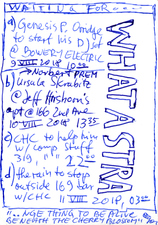 WAITING FOR---
a) Genesis P. Orridge
to start his DJ set
@ BOWERY ELECTRIC
9 VIII 2018, 10:00
→ Norbert PREM
b) Ursula
@ Jeff Hirshorn's
apt @ 166 2nd Ave.
10 VIII 2018
c) CHC to help him
w/ comp stuff
319, " " 22 00
d) the rain to stop
outside 169 bar
w/ CHC 11 VIII 2018, 03 00
WHAT A STRA
"...NGE THING TO BE ALIVE
BENEATH THE CHERRY BLOSSOM"